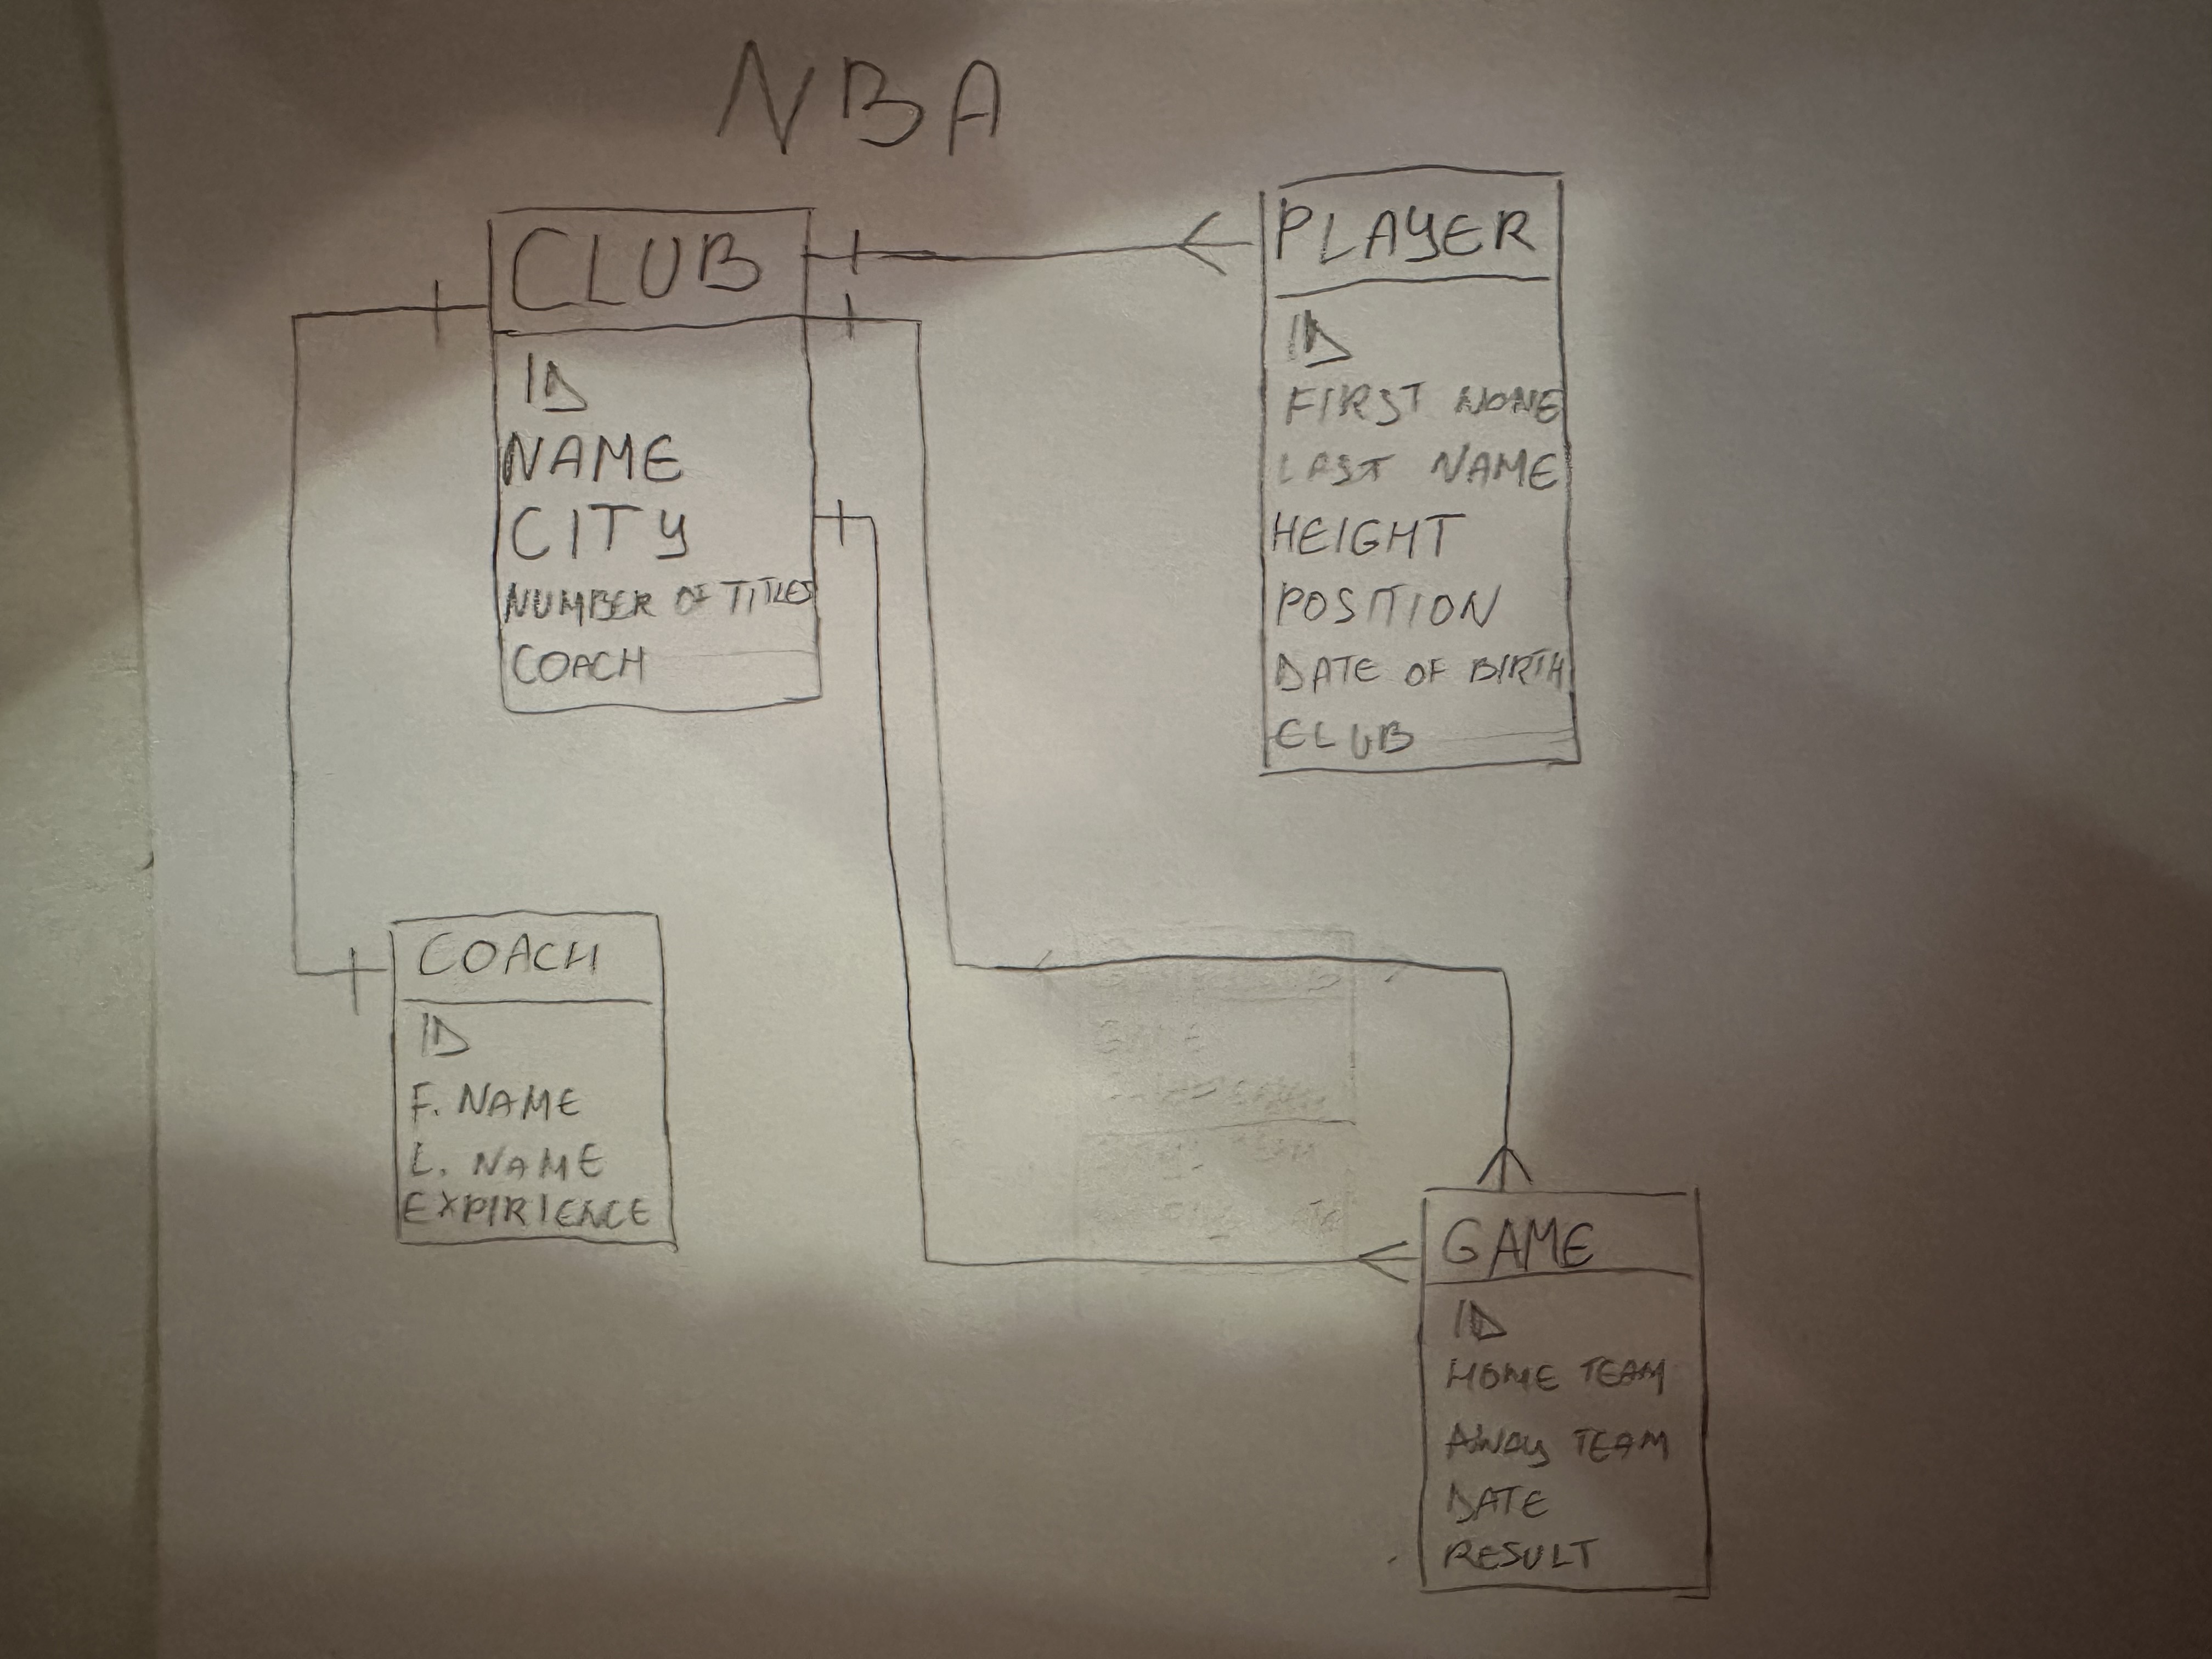 NBA
CLUB
ID
NAME
CITY
NUMBER OF TITLES
COACH
PLAYER
ID
FIRST NAME
LAST NAME
HEIGHT
POSITION
DATE OF BIRTH
CLUB
COACH
ID
F. NAME
L. NAME
EXPIRIENCE
GAME
ID
HOME TEAM
AWAY TEAM
DATE
RESULT